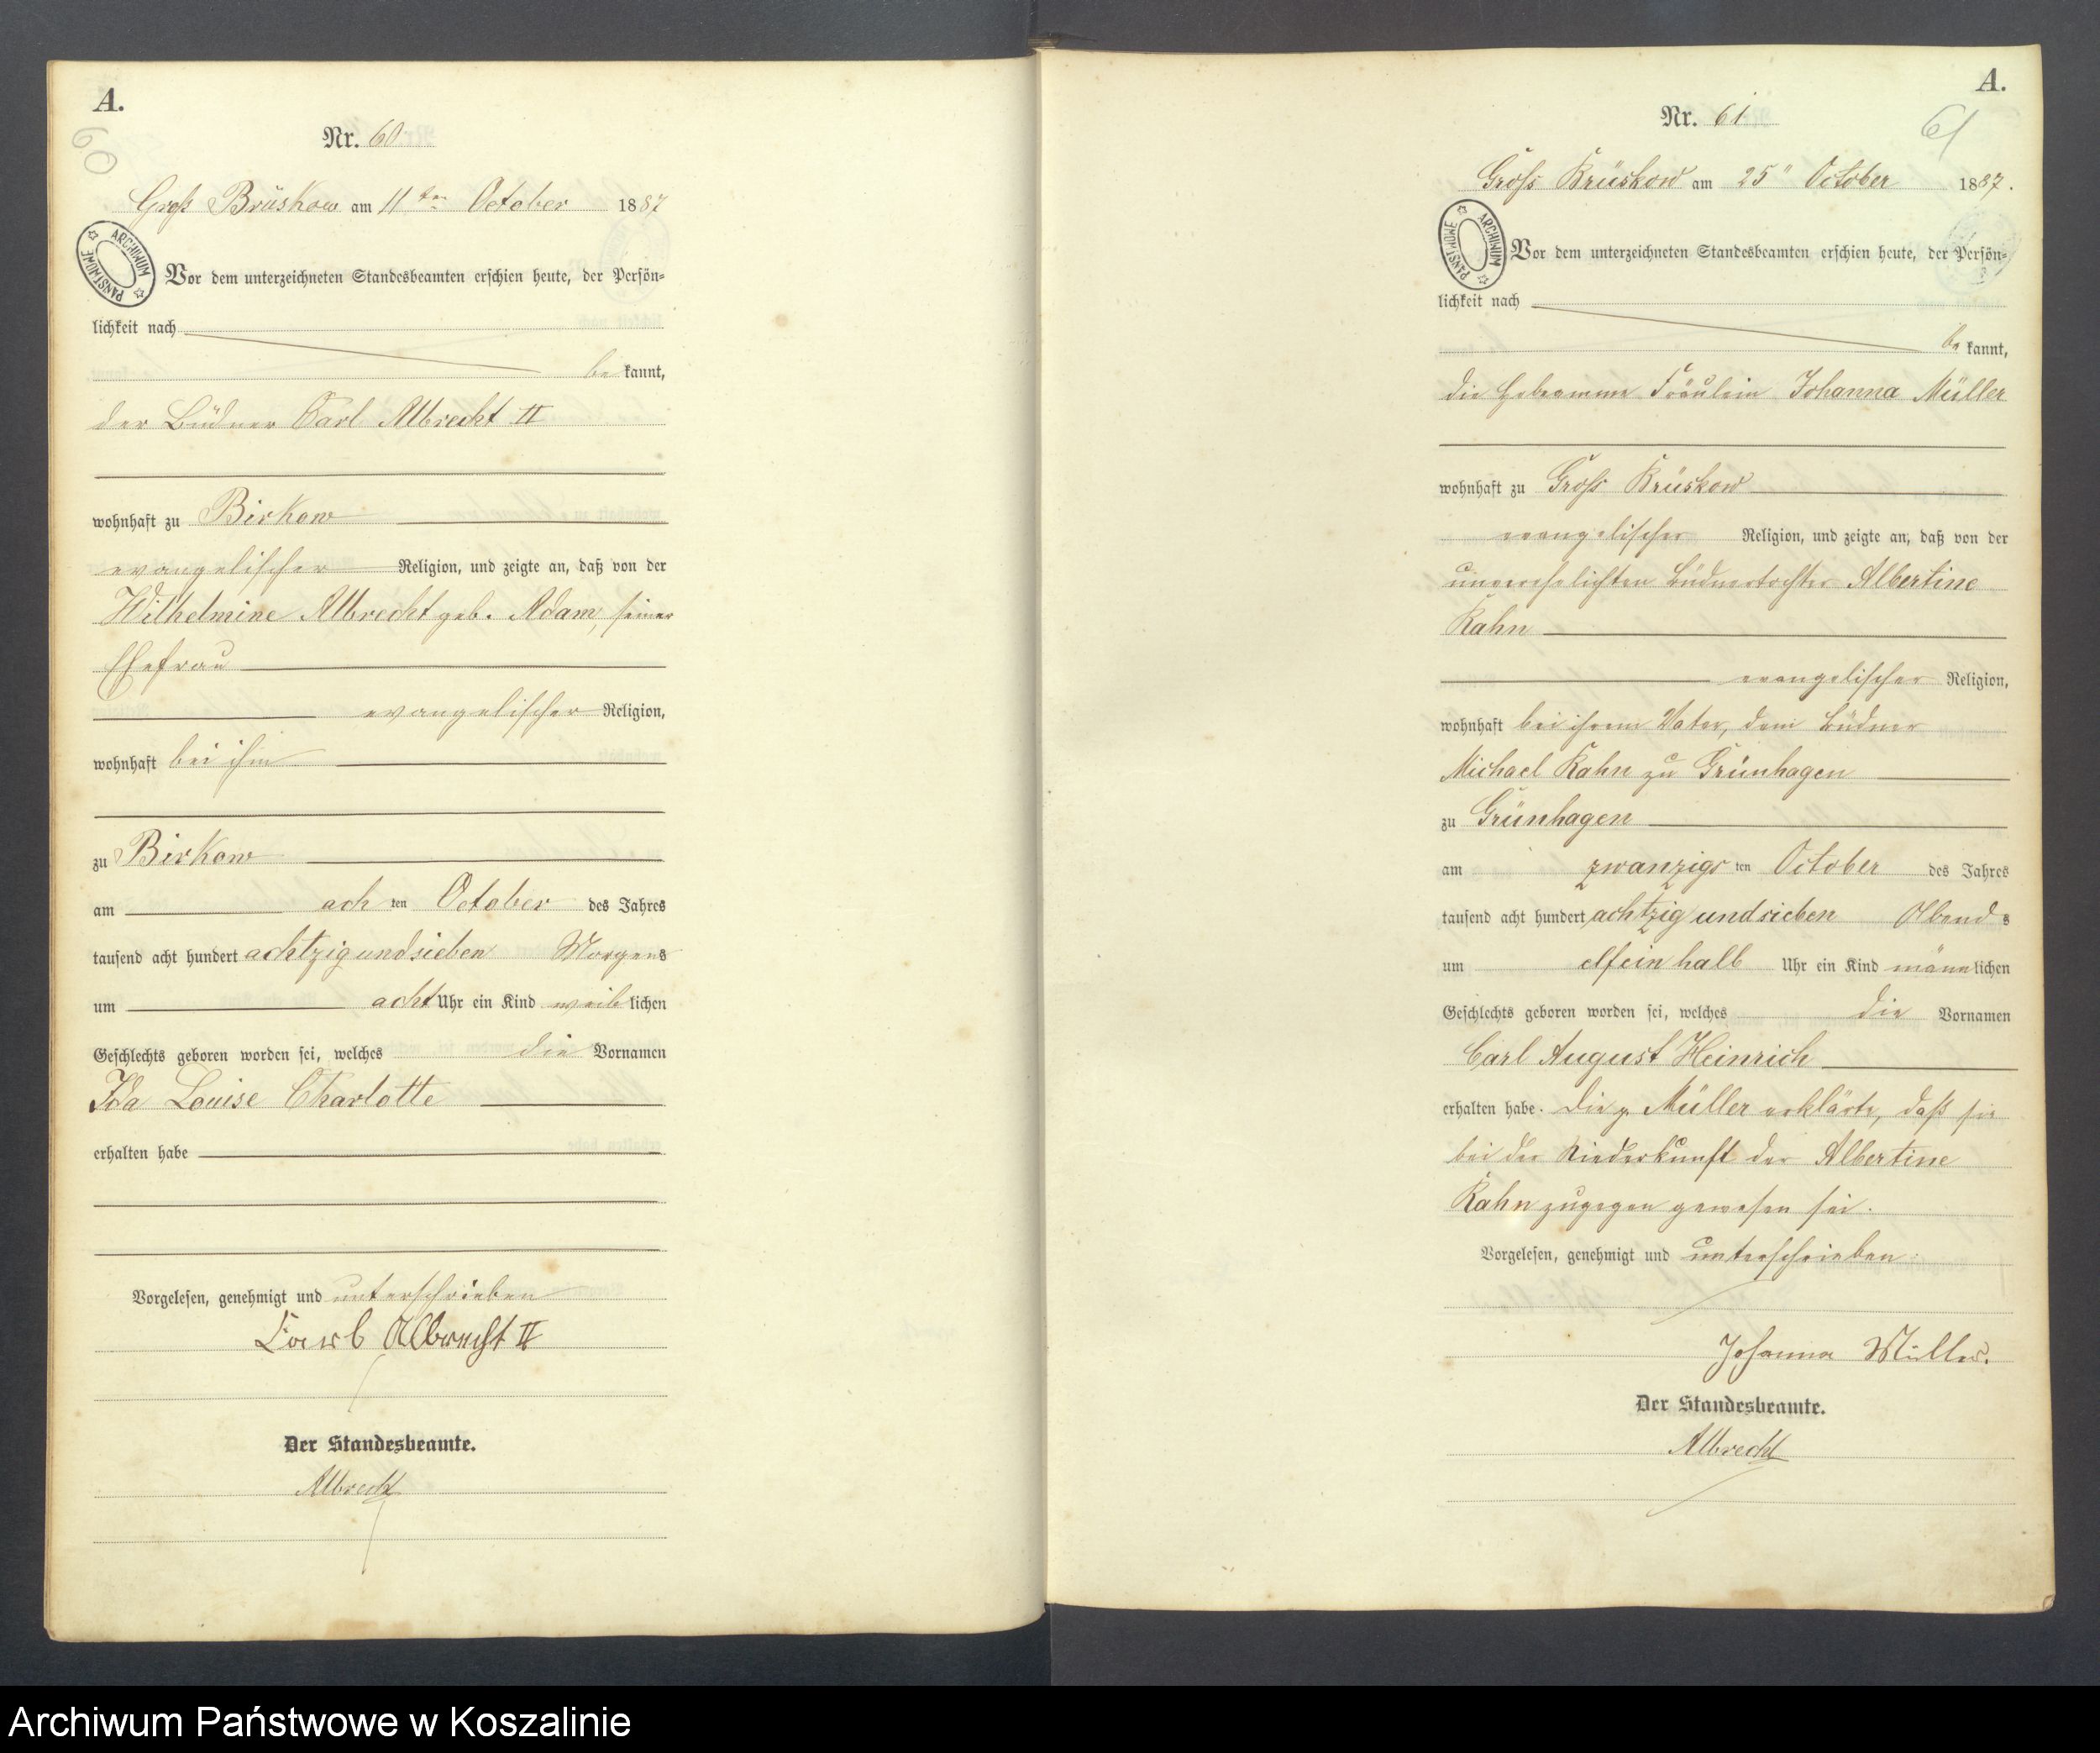 A.
60
Nr. 60
Groß Brüskow am 11ten October 1887
ARCHIWUM PAŃSTWOWE
Vor dem unterzeichneten Standesbeamten erschien heute, der Persön=
lichkeit nach
be kannt,
der Büdner Karl Albrecht II
wohnhaft zu Birkow
evangelischer Religion, und zeigte an, daß von der
Wilhelmine Albrecht geb. Adam, seiner
Ehefrau
evangelischer Religion,
wohnhaft bei ihm
zu Birkow
am ach ten October des Jahres
tausend acht hundert achtzig und sieben Morgens
um acht Uhr ein Kind weib lichen
Geschlechts geboren worden sei, welches die Vornamen
Ida Louise Charlotte
erhalten habe
Vorgelesen, genehmigt und unterschrieben
Karl Albrecht II
Der Standesbeamte.
Albrecht
A.
61
Nr. 61
Groß Brüskow am 25" October 1887.
ARCHIWUM PAŃSTWOWE
Vor dem unterzeichneten Standesbeamten erschien heute, der Persön=
lichkeit nach
be kannt,
die Hebeamme Fräulein Johanna Müller
wohnhaft zu Groß Brüskow
evangelischer Religion, und zeigte an, daß von der
unverehelichten Büdnertochter Albertine
Kahn
evangelischer Religion,
wohnhaft bei ihrem Vater, dem Büdner
Michael Kahn zu Grünhagen
zu Grünhagen
am zwanzigs ten October des Jahres
tausend acht hundert achtzig und sieben Abend s
um elfeinhalb Uhr ein Kind männ lichen
Geschlechts geboren worden sei, welches die Vornamen
Carl August Heinrich
erhalten habe. Die p. Müller erklärte, daß sie
bei der Niederkunft der Albertine
Kahn zugegen gewesen sei.
Vorgelesen, genehmigt und unterschrieben.
Johanna Müller.
Der Standesbeamte.
Albrecht
Archiwum Państwowe w Koszalinie